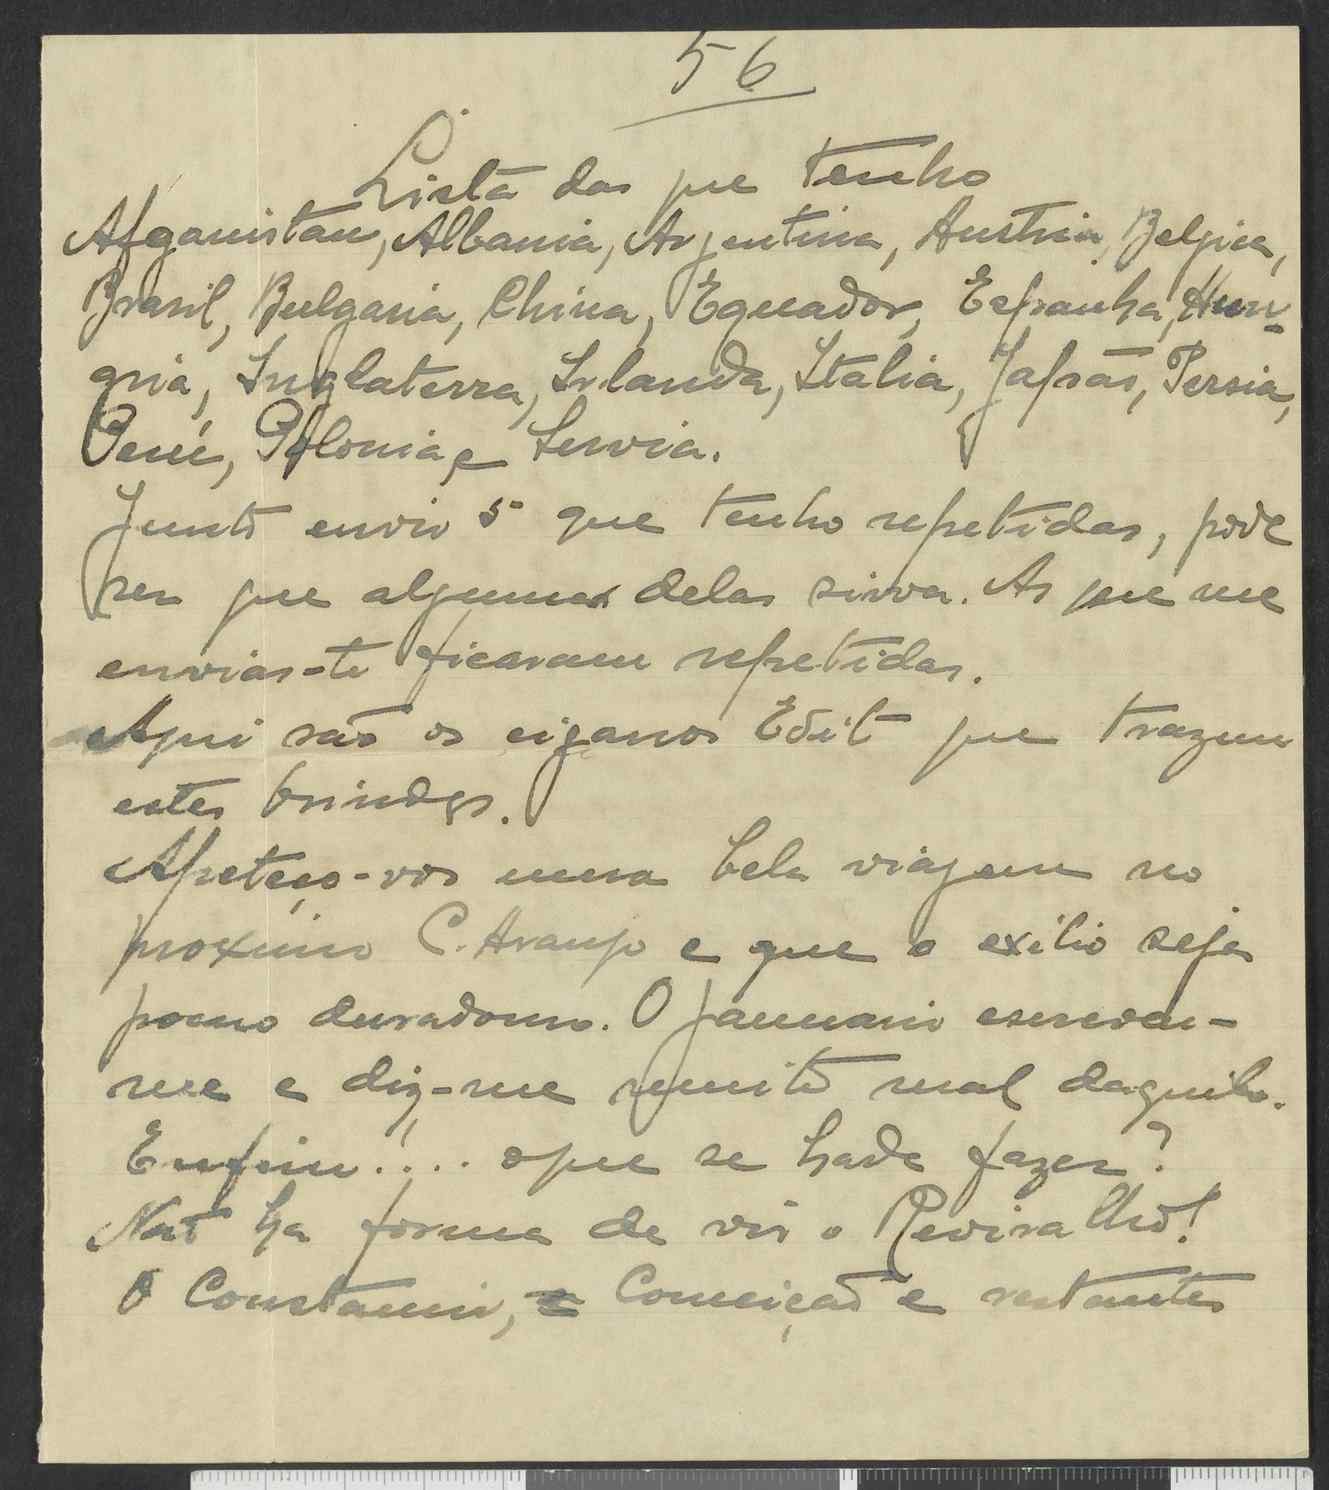 56
Lista das que tenho
Afganistan, Albania, Argentina, Austria, Belgica,
Brasil, Bulgaria, China, Equador, Espanha, Hun-
gria, Inglaterra, Irlanda, Italia, Japão, Persia,
Perú, Polonia, e Servia.
Junto envio 5 que tenho repetidas, pode
ser que algumas delas sirva. As que me
envias-te ficaram repetidas.
Aqui são os cigarros Edit que trazem
estes brindes.
Apeteço-vos uma bela viagem no
proximo C. Araujo e que o exilio seja
pouco duradouro. O Januario escreveu-
me e diz-me muito mal daquilo.
Enfim!... o que se hade fazer?
Não ha forma de vir o Reviralho!
O Constancio, Conceição e restantes